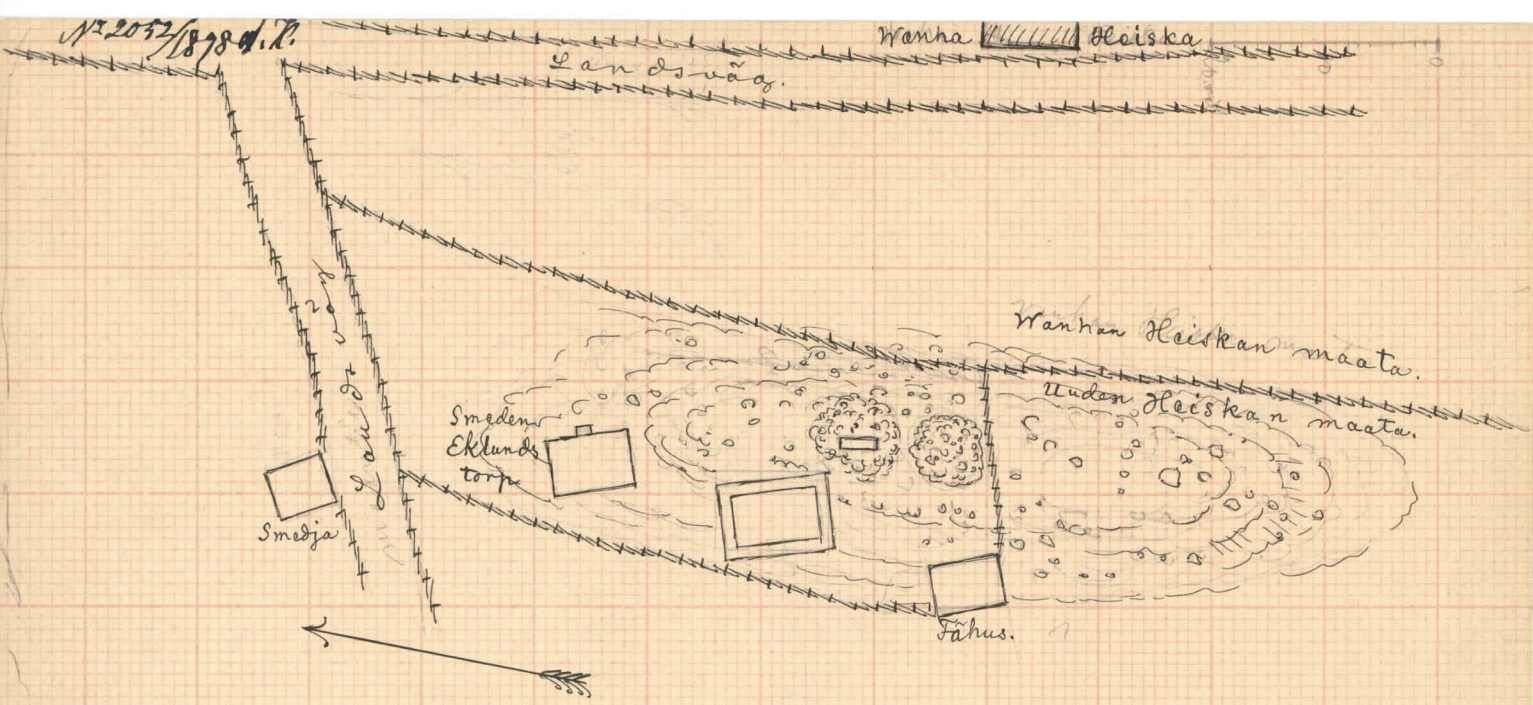 No 2052/1898 d. H.
Wanha Heiska
Landsväg.
Landsväg
Wanhan Heiskan maata.
Uuden Heiskan maata.
Smeden
Eklunds
torp.
Smedja
Fähus.